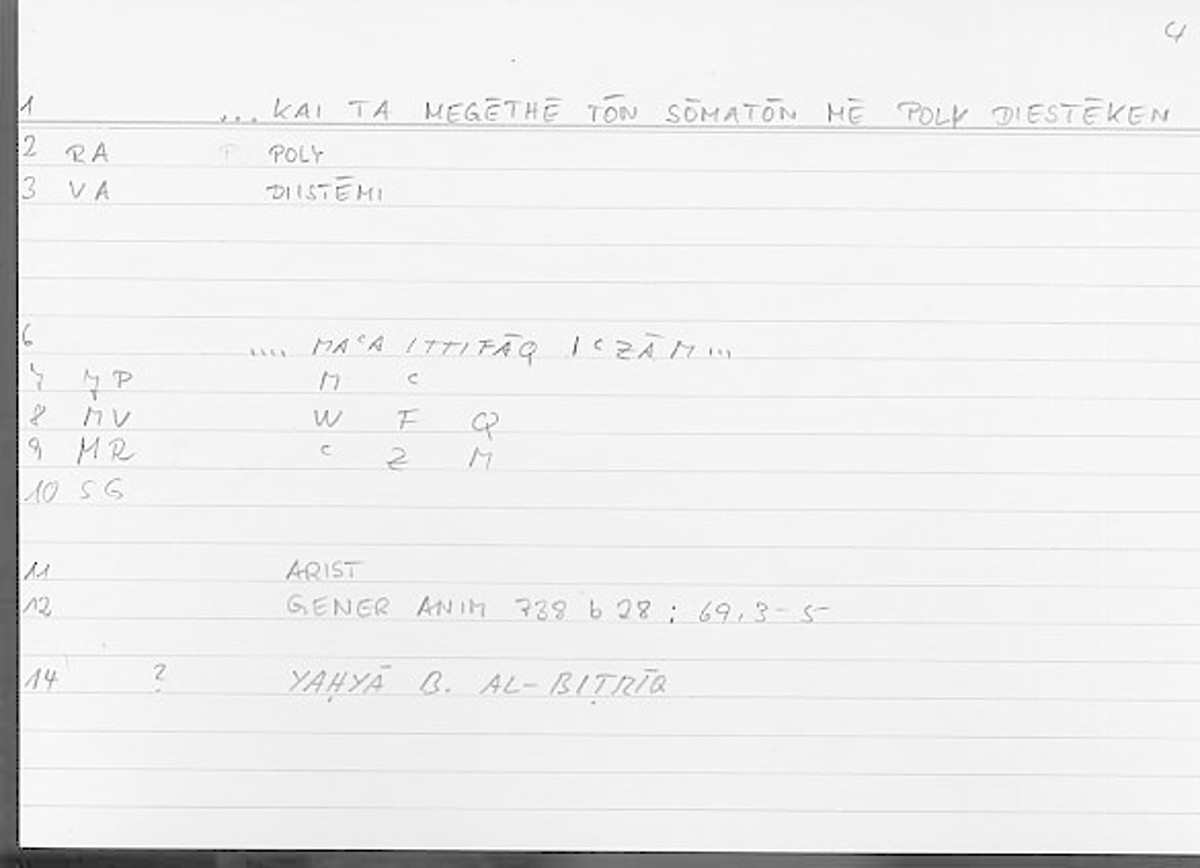 4
1 ... KAI TA MEGĒTHĒ TŌN SŌMATŌN MĒ POLY DIESTĒKEN
2 RA POLY
3 VA DIISTĒMI
6 .... MAᶜA ITTIFĀQ IᶜẒĀM...
7 P M ᶜ
8 MV W F Q
9 MR ᶜ Z M
10 SG
11 ARIST
12 GENER ANIM 738 b 28 ; 69,3-5
14 ? YAḤYĀ B. AL-BIṬRĪQ